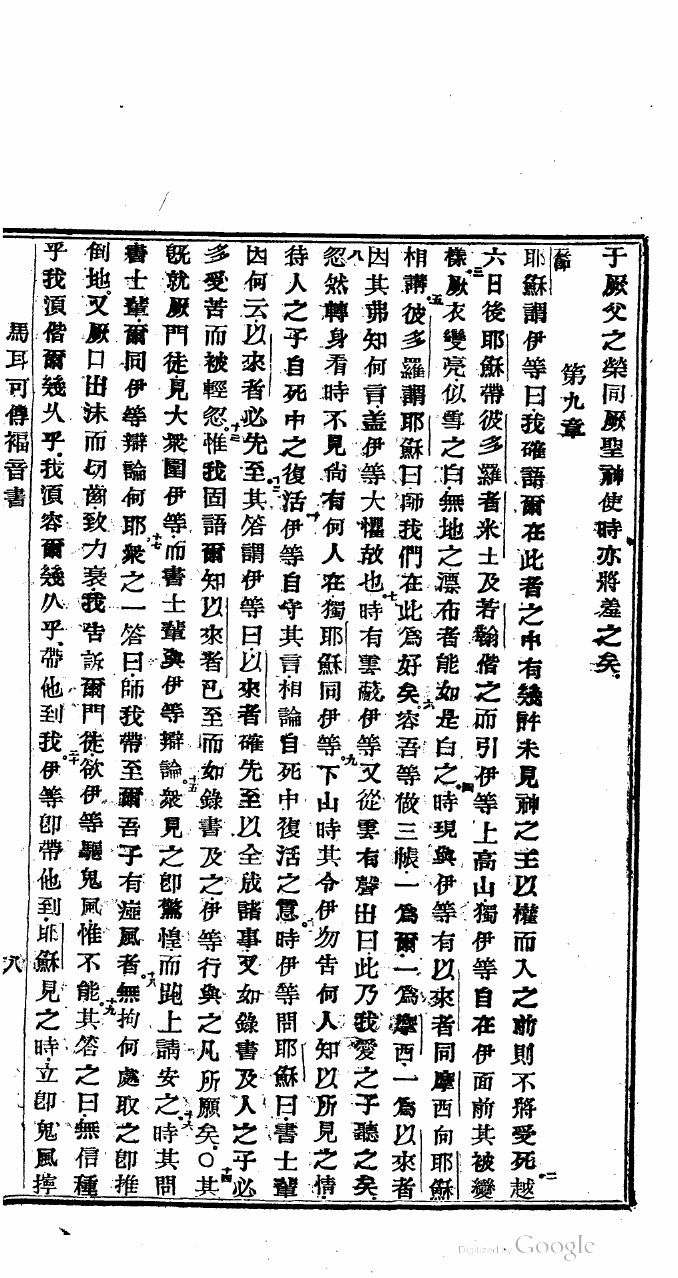 于厥父之榮同厥聖神使時亦將羞之矣
第九章
耶穌謂伊等曰我確語爾在此者之中有幾許未見神之王以權而入之前則不將受死越二
六日後耶穌帶彼多羅者米士及若翰偕之而引伊等上高山獨伊等自在伊面前其被變
樣三厥衣變亮似雪之白無地之漂布者能如是白之四時現與伊等有以來者同摩西向耶穌
相講五彼多羅謂耶穌曰師我們在此為好矣六容吾等做三帳一為爾一為摩西一為以來者
因其弗知何言蓋伊等大懼故也七時有雲蔽伊等又從雲有聲出曰此乃我愛之子聽之矣
八忽然轉身看時不見尚有何人在獨耶穌同伊等九下山時其令伊勿告何人知以所見之情
待人之子自死中之復活十伊等自守其言相論自死中復活之意時伊等問耶穌曰書士輩
因何云以來者必先至十二其答謂伊等曰以來者確先至以全成諸事又如錄書及人之子必
多受苦而被輕忽十三惟我固語爾知以來者已至而如錄書及之伊等行與之凡所願矣○十四其
既就厥門徒見大衆圍伊等而書士輩與伊等辯論十五衆見之即驚惶而跑上請安之十六時其問
書士輩爾同伊等辯論何耶十七衆之一答曰師我帶至爾吾子有瘂風者十八無拘何處取之即推
倒地又厥口出沫而切齒致力衰我告訴爾門徒欲伊等驅鬼風惟不能十九其答之曰無信種
乎我須偕爾幾久乎我須容爾幾久乎帶他到我二十伊等即帶他到耶穌見之時立即鬼風擰
馬耳可傳福音書
八
Digitized by Google